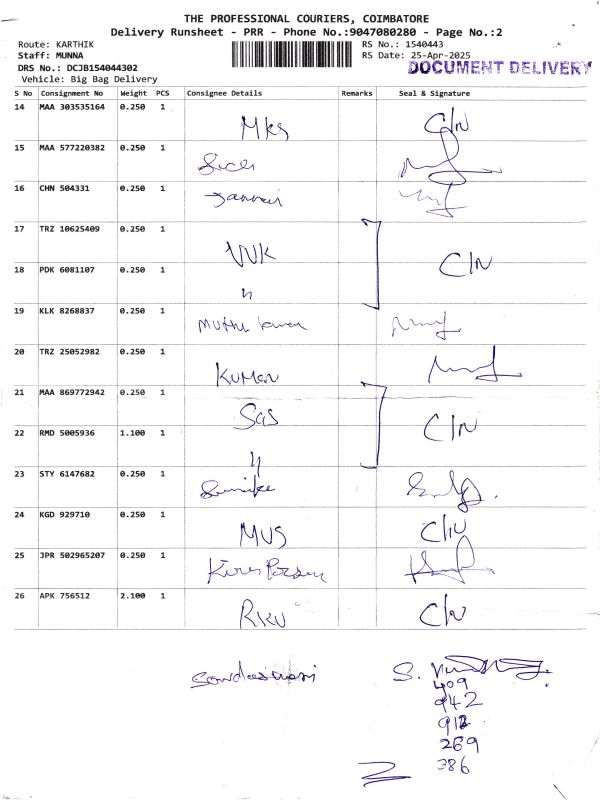 THE PROFESSIONAL COURIERS, COIMBATORE
Delivery Runsheet - PRR - Phone No.:9047080280 - Page No.:2
Route: KARTHIK
RS No.: 1540443
Staff: MUNNA
RS Date: 25-Apr-2025
DRS No.: DCJB154044302
DOCUMENT DELIVERY
Vehicle: Big Bag Delivery
S No Consignment No Weight PCS Consignee Details Remarks Seal & Signature
14 MAA 303535164 0.250 1 MKS C/N
15 MAA 577220382 0.250 1
16 CHN 504331 0.250 1
17 TRZ 10625409 0.250 1 VVK C/N
18 PDK 6081107 0.250 1 "
19 KLK 8268837 0.250 1 Muthu Kumar
20 TRZ 25052982 0.250 1 Kumar
21 MAA 869772942 0.250 1 Sas C/N
22 RMD 5005936 1.100 1 "
23 STY 6147682 0.250 1
24 KGD 929710 0.250 1 MVS C/N
25 JPR 502965207 0.250 1
26 APK 756512 2.100 1 RKV C/N
S.
409
942
912
269
386